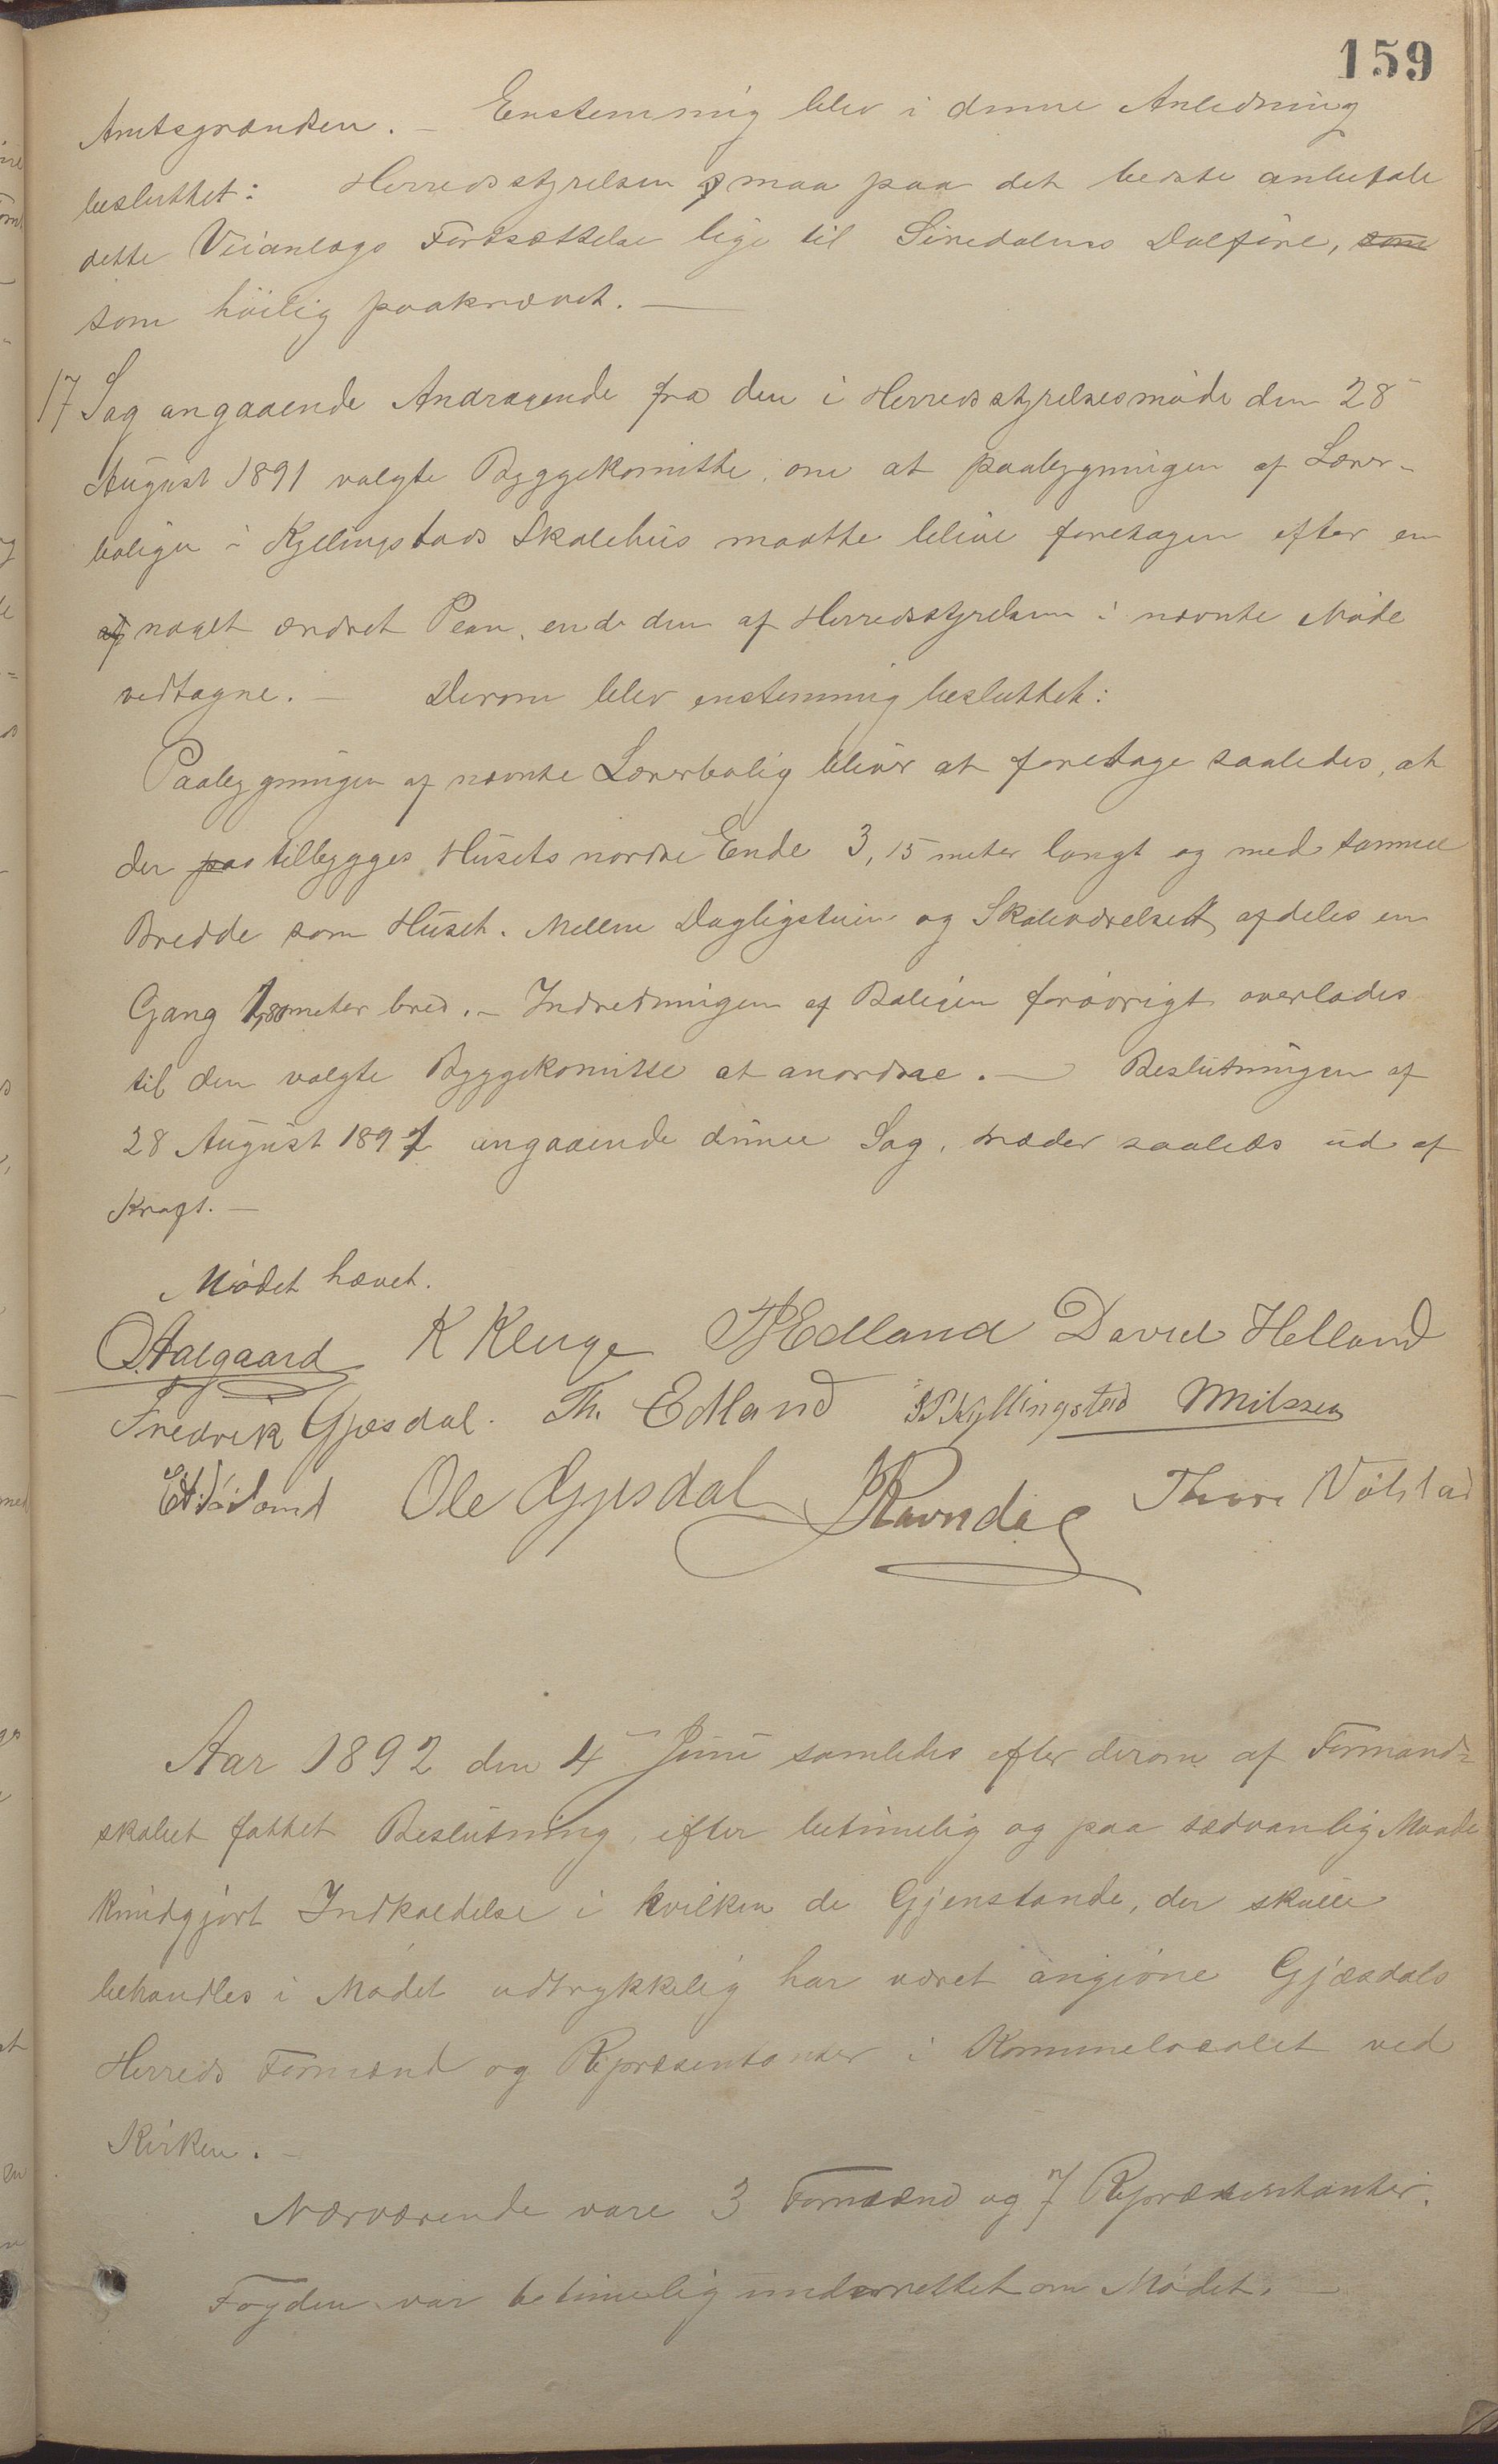 159
Amtsgrændsen. — Enstemmig blev i denne Anledning
besluttet: Herredsstyrelsen maa paa det beste anbefale
dette Veianlægs Fortsættelse lige til Siredalens Dalføre, som
som høilig paakrævet. —
17 Sag angaaende Andragende fra den i Herredsstyrelsesmøde den 28
August 1891 valgte Byggekomitte, om at paabygningen af Lærer-
boligen i Kyllingstads Skolehus maatte blive foretagen efter en
af noget ændret Plan, end den af Herredsstyrelsen i nævnte Møde
vedtagne. — Derom blev enstemmig besluttet:
Paabygningen af nævnte Lærerbolig bliver at foretage saaledes, at
der paa tilbygges Husets nordre Ende 3,15 meter langt og med samme
Bredde som Huset. Mellem Dagligstuen og Skoleværelset afdeles en
Gang 1,80 meter bred. — Indredningen af Boligen forøvrigt overlades
til den valgte Byggekomitte at anordne. — Beslutningen af
28 August 1891 angaaende denne Sag, træder saaledes ud af
Kraft. —
Mødet hævet.
O. Aalgaard K Kluge TPEdland David Helland
Fredrik Gjesdal. Th. Edland SPKyllingstad MNilssen
Ole Gjesdal Ravndal Thore Nølstad
Aar 1892 den 4 Juni samledes efter derom af Formand-
skabet fattet Beslutning, efter betimelig og paa sædvanlig Maade
kundgjort Indkaldelse i hvilken de Gjenstande, der skulle
behandles i Mødet udtrykkelig har været angivne Gjæsdals
Herreds Formænd og Repræsentanter i Kommunelocalet ved
Kirken. —
Nærværende vare 3 Formænd og 7 Repræsentanter.
Fogden var betimelig underrettet om Mødet. —